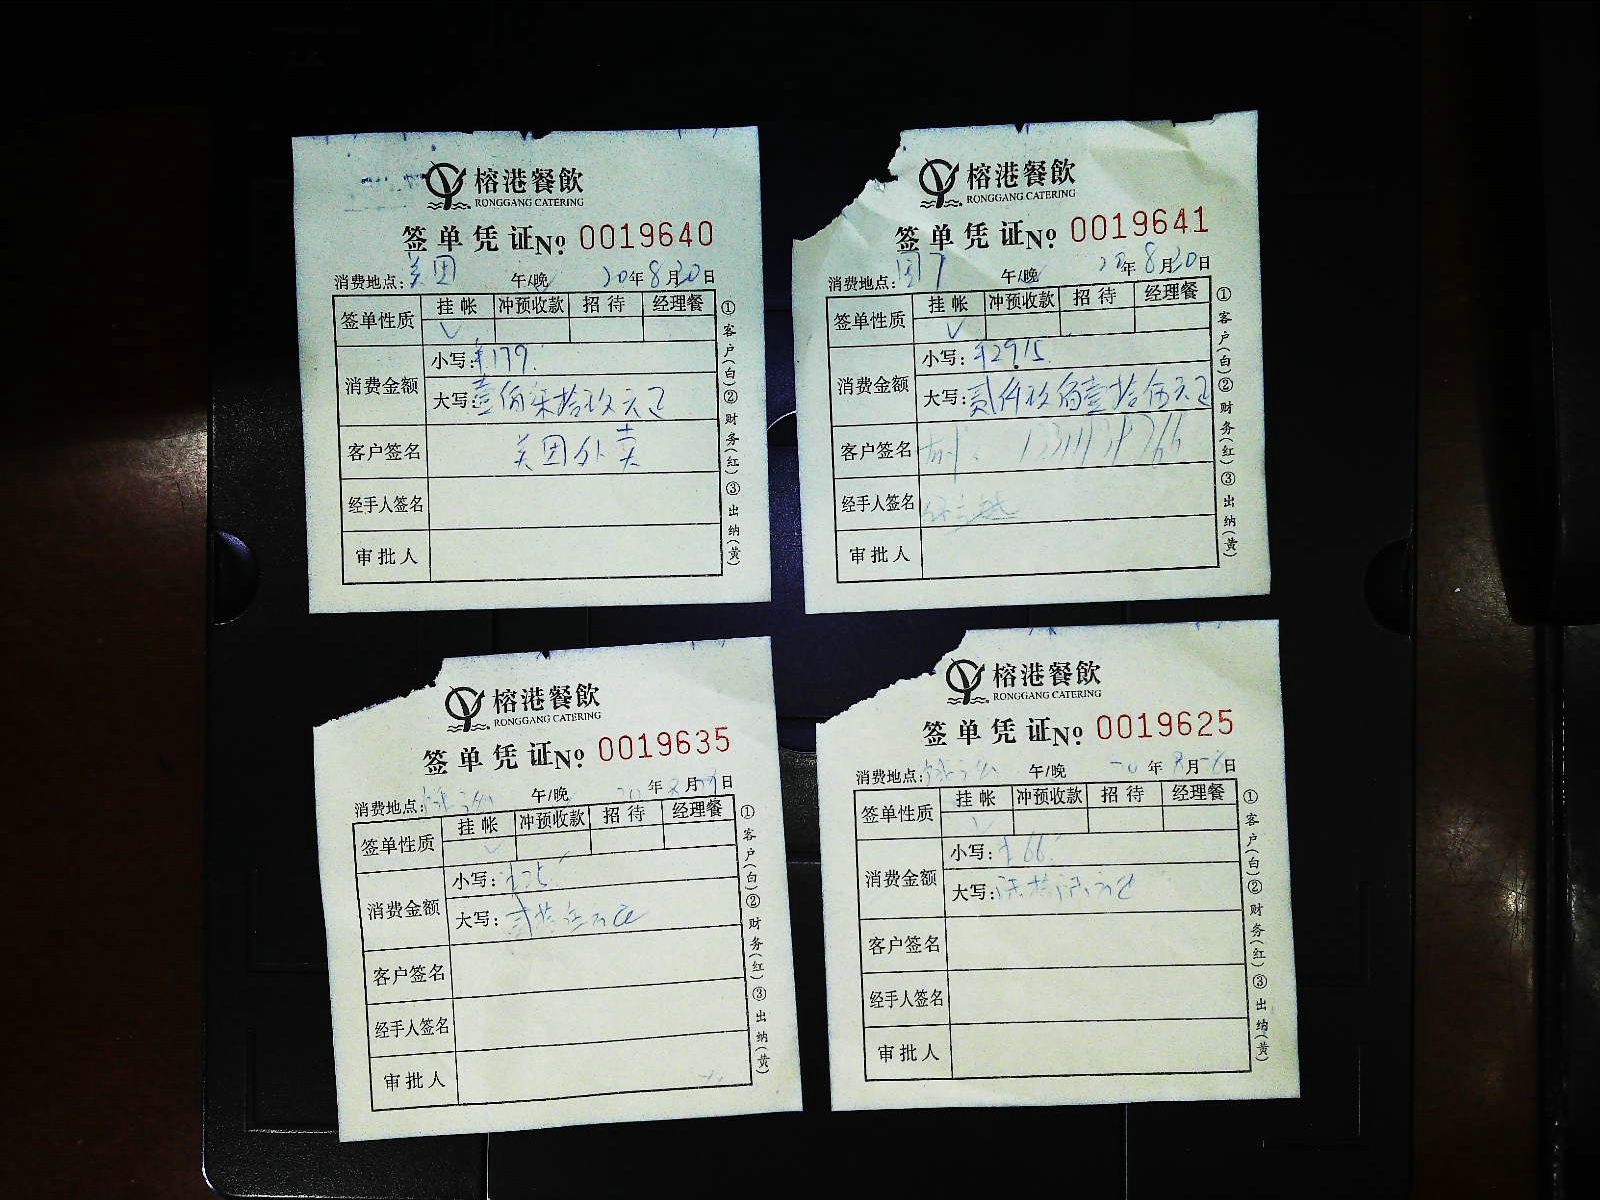 榕港餐飲
RONGGANG CATERING
签单凭证№ 0019640
消费地点:美团 午/晚 20年8月30日
签单性质 挂帐 冲预收款 招待 经理餐
√
消费金额 小写:¥179.
大写:壹佰柒拾玖元正
客户签名 美团外卖
经手人签名
审批人
①客户(白)②财务(红)③出纳(黄)
榕港餐飲
RONGGANG CATERING
签单凭证№ 0019641
消费地点: 午/晚 20年8月30日
签单性质 挂帐 冲预收款 招待 经理餐
√
消费金额 小写:¥2915.
大写:贰仟玖佰壹拾伍元正
客户签名
经手人签名
审批人
①客户(白)②财务(红)③出纳(黄)
榕港餐飲
RONGGANG CATERING
签单凭证№ 0019635
消费地点: 午/晚 20年8月 日
签单性质 挂帐 冲预收款 招待 经理餐
√
消费金额 小写:¥25.
大写:贰拾伍元正
客户签名
经手人签名
审批人
①客户(白)②财务(红)③出纳(黄)
榕港餐飲
RONGGANG CATERING
签单凭证№ 0019625
消费地点: 午/晚 20年8月 日
签单性质 挂帐 冲预收款 招待 经理餐
√
消费金额 小写:¥66.
大写:陆拾陆元正
客户签名
经手人签名
审批人
①客户(白)②财务(红)③出纳(黄)